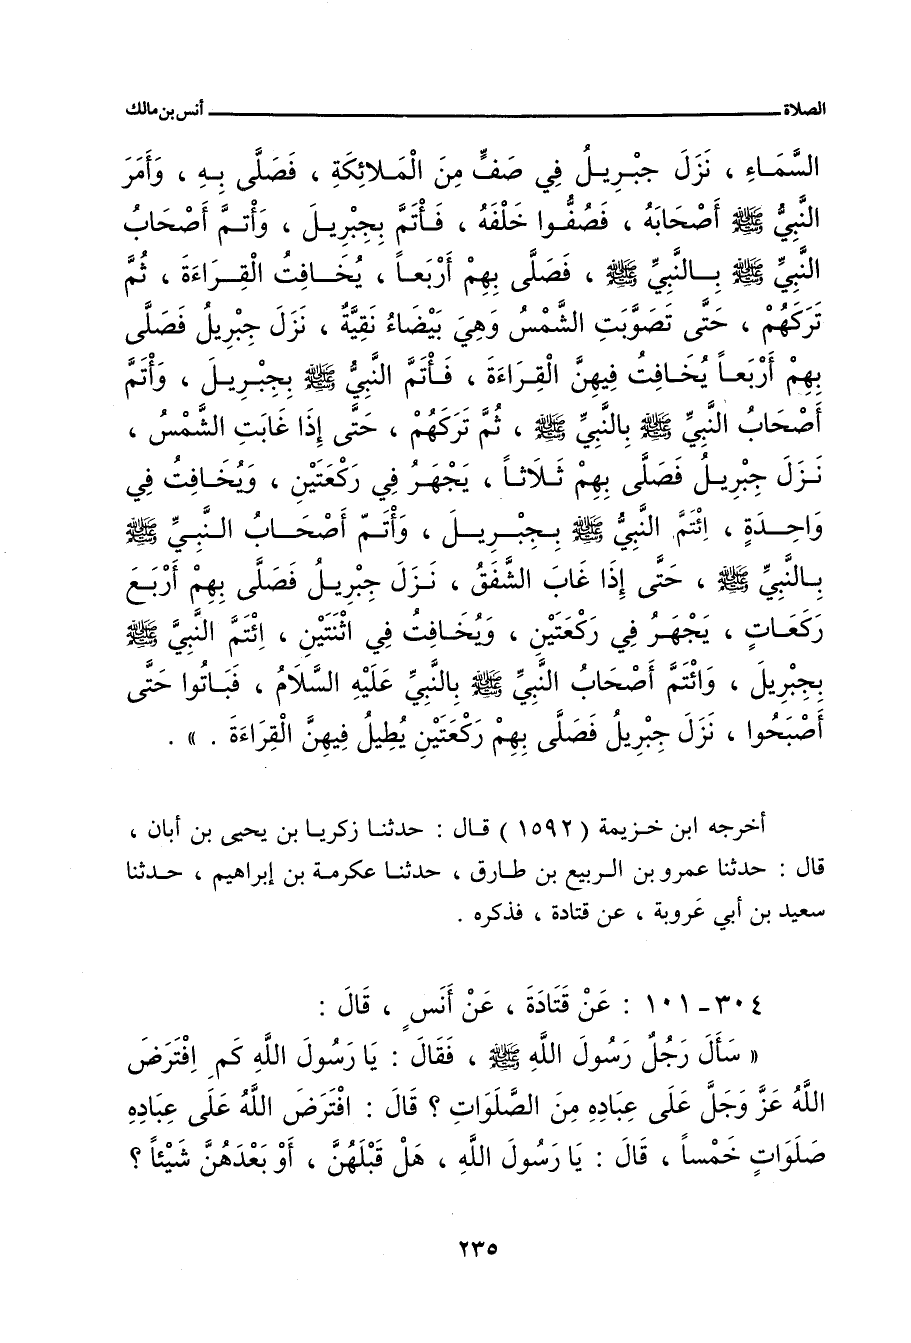 الصلاة أنس بن مالك
السَّمَاءِ ، نَزَلَ جِبْرِيلُ فِي صَفٍّ مِنَ الْمَلائِكَةِ ، فَصَلَّى بِهِ ، وَأَمَرَ
النَّبِيُّ ﷺ أَصْحَابَهُ ، فَصُفُّوا خَلْفَهُ ، فَأْتَمَّ بِجِبْرِيلَ ، وَأْتمَّ أَصْحَابُ
النَّبِيِّ ﷺ بِالنَّبِيِّ ﷺ ، فَصَلَّى بِهِمْ أَرْبَعاً ، يُخَافِتُ الْقِرَاءَةَ ، ثُمَّ
تَرَكَهُمْ ، حَتَّى تَصَوَّبَتِ الشَّمْسُ وَهِيَ بَيْضَاءُ نَقِيَّةٌ ، نَزَلَ جِبْرِيلُ فَصَلَّى
بِهِمْ أَرْبَعاً يُخَافِتُ فِيهِنَّ الْقِرَاءَةَ ، فَأْتَمَّ النَّبِيُّ ﷺ بِجِبْرِيلَ ، وَأْتَمَّ
أَصْحَابُ النَّبِيِّ ﷺ بِالنَّبِيِّ ﷺ ، ثُمَّ تَرَكَهُمْ ، حَتَّى إِذَا غَابَتِ الشَّمْسُ ،
نَزَلَ جِبْرِيلُ فَصَلَّى بِهِمْ ثَلاثاً ، يَجْهَرُ فِي رَكْعَتَيْنِ ، وَيُخَافِتُ فِي
وَاحِدَةٍ ، اِئْتَمَّ النَّبِيُّ ﷺ بِجِبْرِيلَ ، وَأْتَمّ أَصْحَابُ النَّبِيِّ ﷺ
بِالنَّبِيِّ ﷺ ، حَتَّى إِذَا غَابَ الشَّفَقُ ، نَزَلَ جِبْرِيلُ فَصَلَّى بِهِمْ أَرْبَعَ
رَكَعَاتٍ ، يَجْهَرُ فِي رَكْعَتَيْنِ ، وَيُخَافِتُ فِي اثْنَتَيْنِ ، اِئْتَمَّ النَّبِيُّ ﷺ
بِجِبْرِيلَ ، وَائْتَمَّ أَصْحَابُ النَّبِيِّ ﷺ بِالنَّبِيِّ عَلَيْهِ السَّلَامُ ، فَبَاتُوا حَتَّى
أَصْبَحُوا ، نَزَلَ جِبْرِيلُ فَصَلَّى بِهِمْ رَكْعَتَيْنِ يُطِيلُ فِيهِنَّ الْقِرَاءَةَ . » .
أخرجه ابن خزيمة ( ١٥٩٢ ) قال : حدثنا زكريا بن يحيى بن أبان ،
قال : حدثنا عمرو بن الربيع بن طارق ، حدثنا عكرمة بن إبراهيم ، حدثنا
سعيد بن أبي عَروبة ، عن قتادة ، فذكره .
٣٠٤ - ١٠١ : عَنْ قَتَادَةَ ، عَنْ أَنَسٍ ، قَالَ :
« سَأَلَ رَجُلٌ رَسُولَ اللَّهِ ﷺ ، فَقَالَ : يَا رَسُولَ اللَّهِ كَمِ اِفْتَرَضَ
اللَّهُ عَزَّ وَجَلَّ عَلَى عِبَادِهِ مِنَ الصَّلَوَاتِ ؟ قَالَ : افْتَرَضَ اللَّهُ عَلَى عِبَادِهِ
صَلَوَاتٍ خَمْساً ، قَالَ : يَا رَسُولَ اللَّهِ ، هَلْ قَبْلَهُنَّ ، أَوْ بَعْدَهُنَّ شَيْئاً ؟
٢٣٥